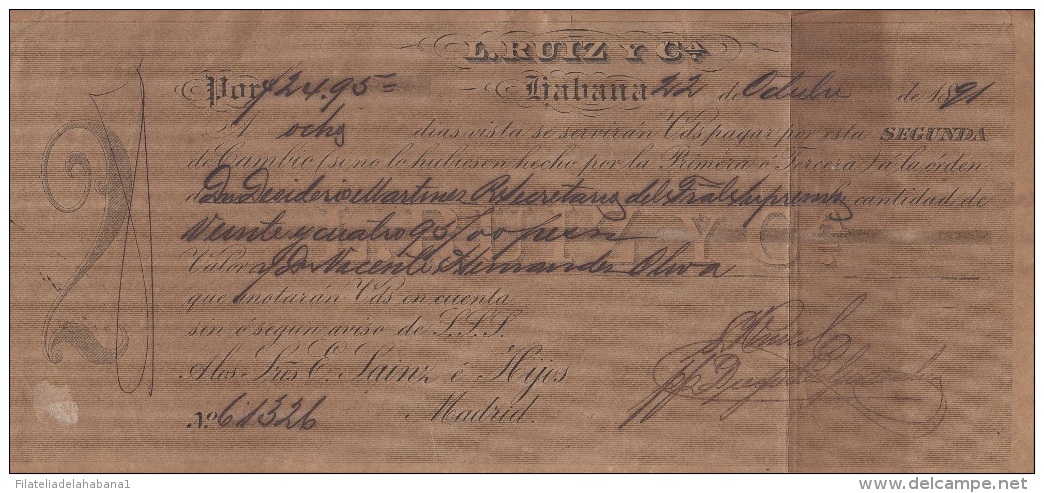 L. RUIZ Y Cª
Por $24.95= Habana 22 de Octubre de 1891
A ocho dias vista se servirán Vds pagar por esta SEGUNDA
de Cambio (si no lo hubiesen hecho por la Primera o Tercera) a la órden
de Dn Desiderio Martinez Secretario del Tral Supremo la cantidad de
Veinte y cuatro 95/100 pesos
L. RUIZ Y Cª
Valor Dn Vicente Hernandez Oliva
que anotarán Vds en cuenta
sin ó segun aviso de S.S.S.
A los Sres E. Sainz é Hijos
Nº 61326 Madrid.
Filateliadelahabana1
delcampe.net